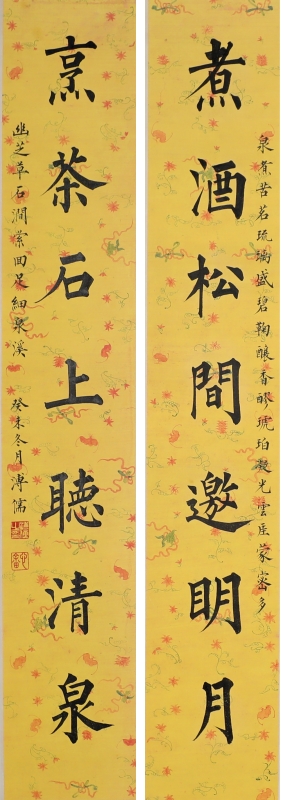 煮酒松間邀明月
泉煮苦茗琉璃盛碧麴釀香醪琥珀凝光雲崖蒙密多
幽芝草石澗縈回足細泉溪
烹茶石上聽清泉
癸未冬月溥儒